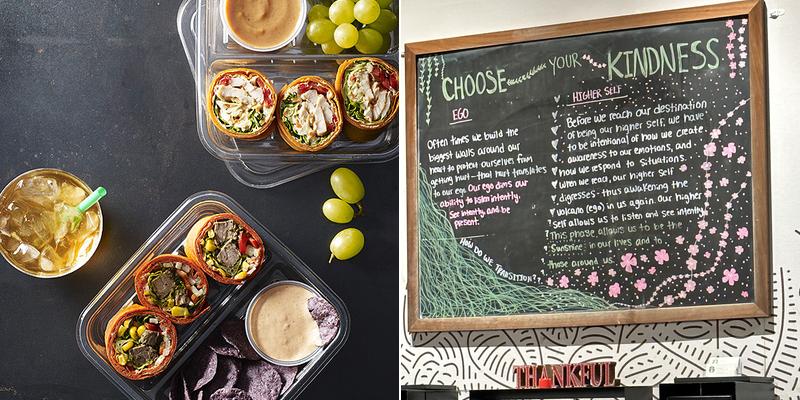 CHOOSE YOUR KINDNESS
EGO
Often times we build the
biggest walls around our
heart to protect ourselves from
getting hurt - that hurt translates
to our ego. Our ego dims our
ability to listen intently,
see intently, and be
present.
HOW DO WE TRANSITION?
HIGHER SELF
Before we reach our destination
of being our higher self, we have
to be intentional of how we create
awareness to our emotions, and
how we respond to situations.
when we react, our higher self
digresses - thus awakening the
volcano (ego) in us again. Our higher
self allows us to listen and see intently.
This phase allows us to be the
Sunshine in our lives and to
those around us.
THANKFUL